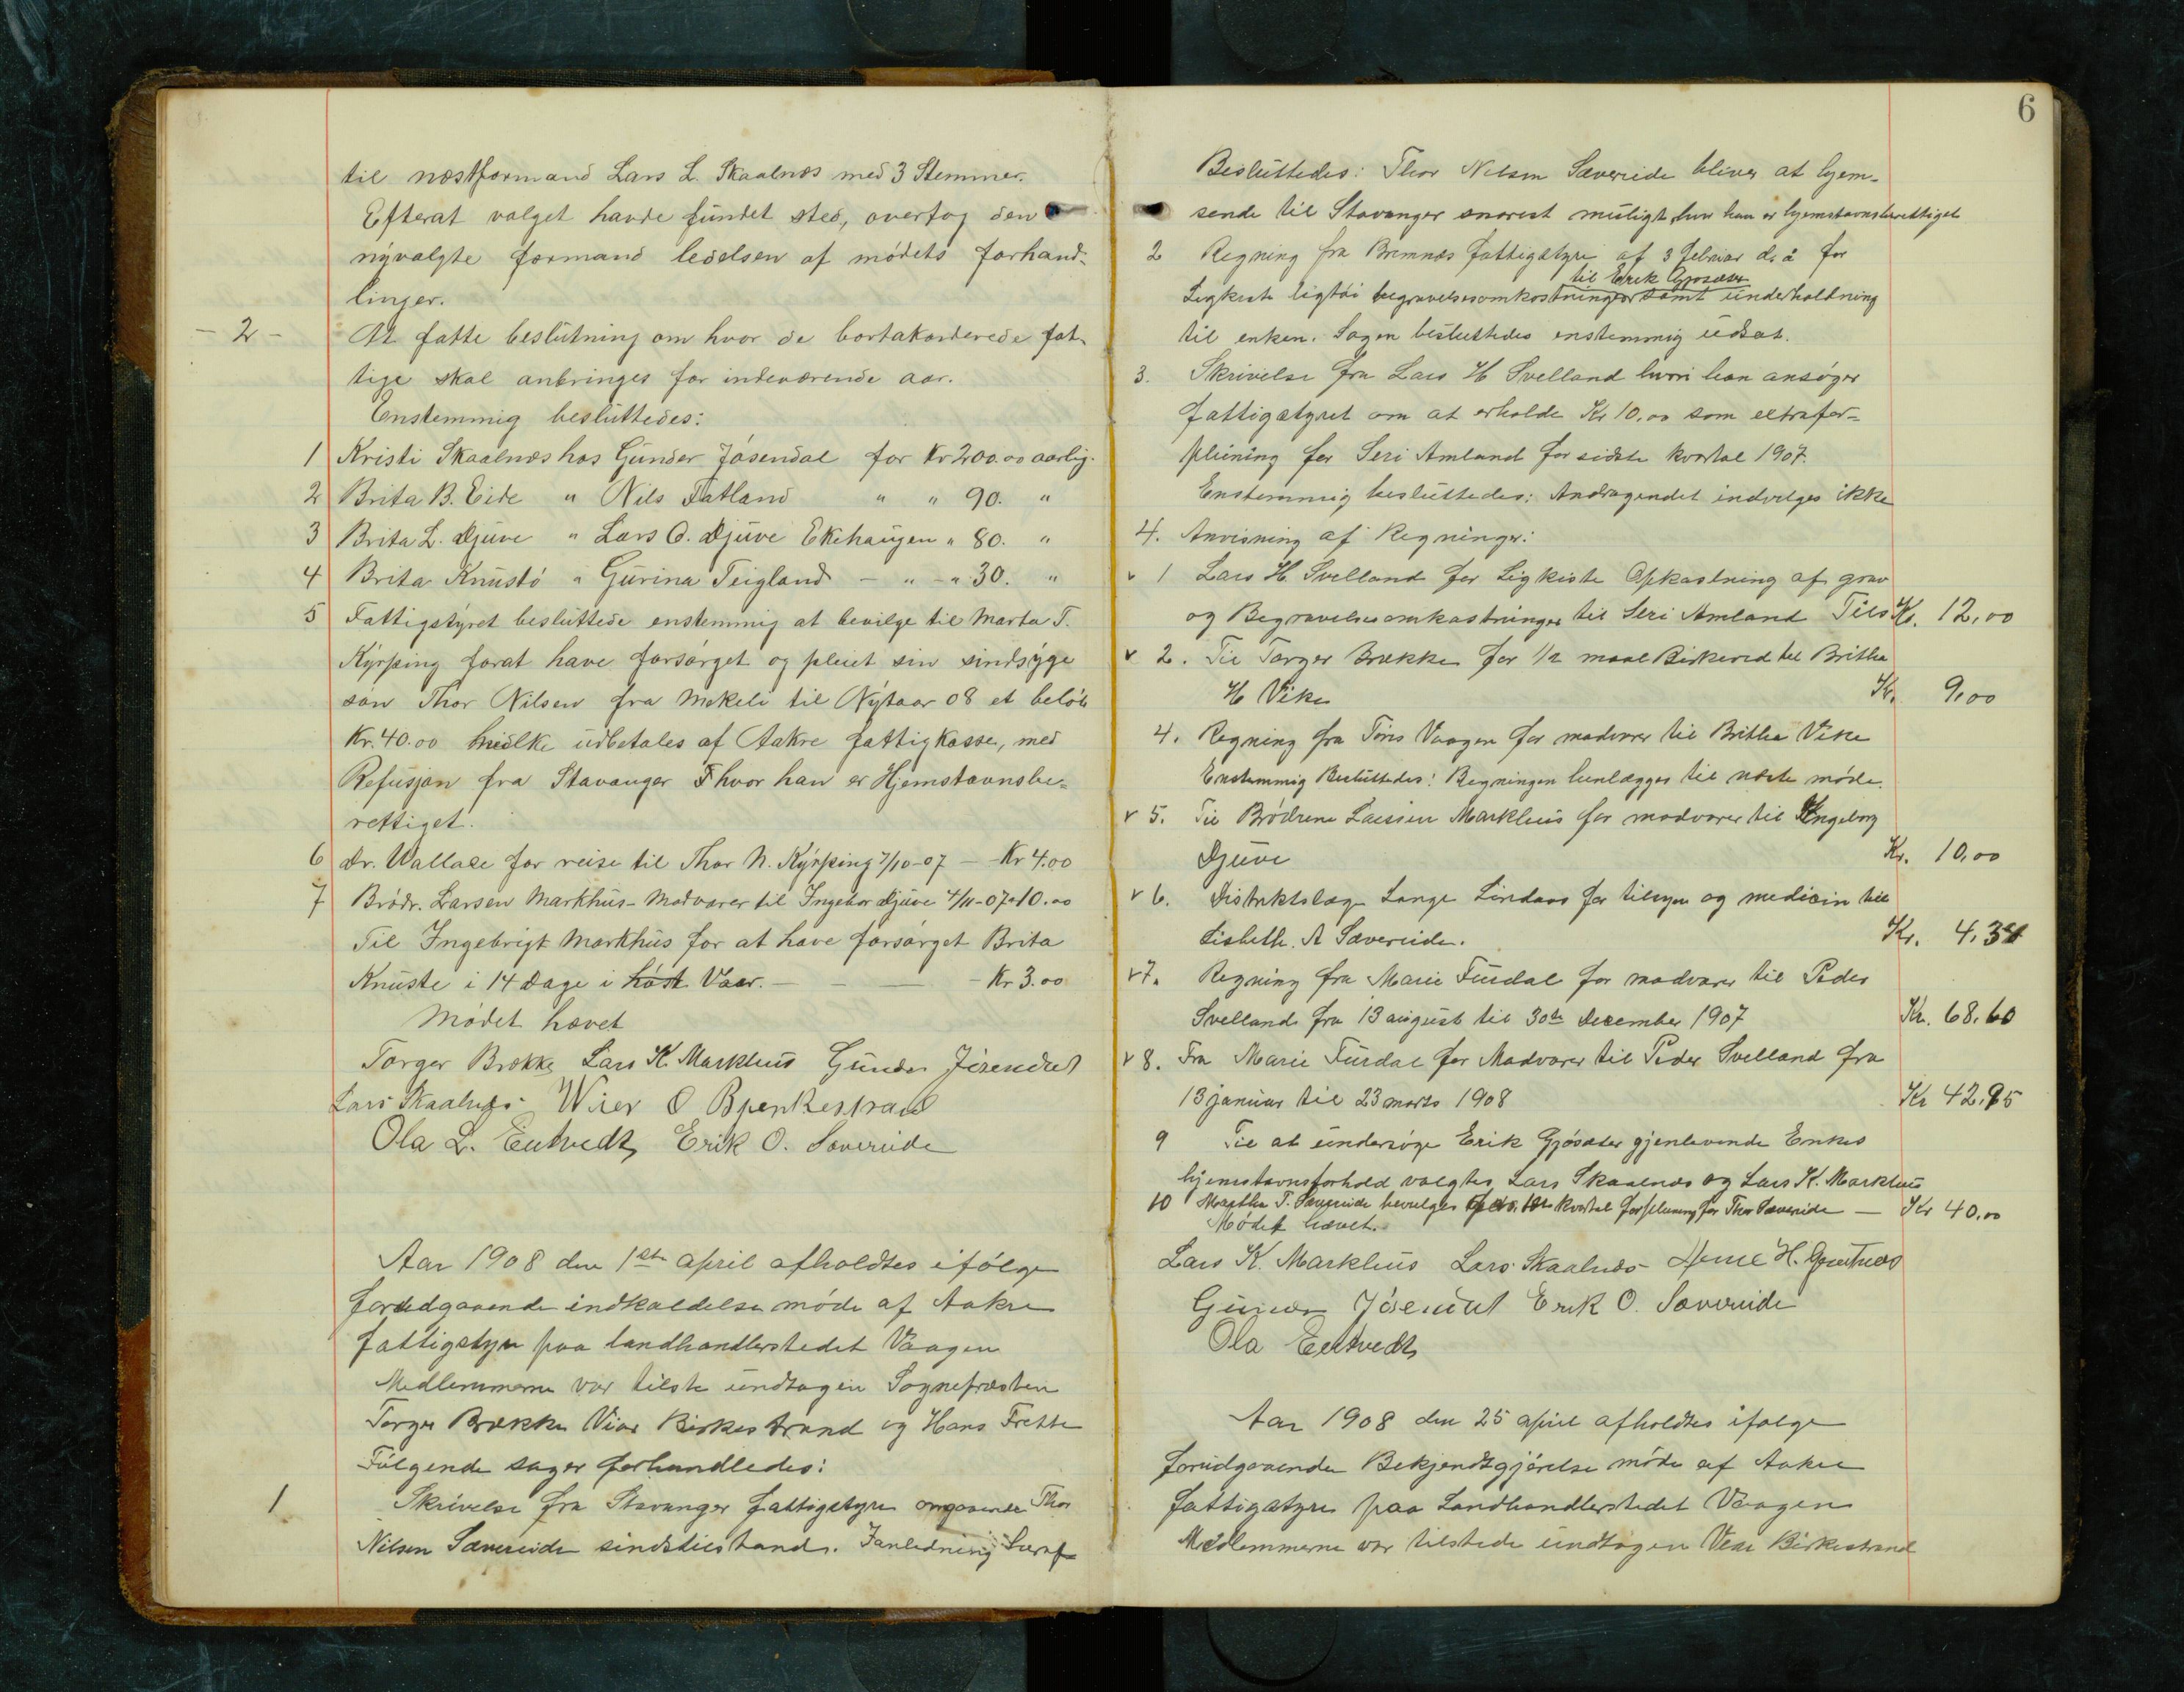 til næstformand Lars L. Skaalnæs med 3 Stemmer.
Efterat valget havde fundet sted, overtog den
nyvalgte formand ledelsen af mødets forhand-
linger.
- 2 - At fatte beslutning om hvor de bortakorderede fat-
tige skal anbringes for indeværende aar.
Enstemmig besluttedes:
1 Kristi Skaalnæs hos Gunder Jøsendal for Kr 200.00 aarlig.
2 Brita B. Eide " Nils Fatland " " 90. "
3 Brita L. Djuve " Lars O. Djuve Ekehaugen " 80. "
4 Brita Knustø " Gurina Teigland - " - " 30. "
5 Fattigstyret besluttede enstemmig at bevilge til Marta T.
Kyrping forat have forsørget og pleiet sin sindsyge
søn Thor Nilsen fra Mekeli til Nytaar 08 et beløb
Kr. 40.00 hvilke udbetales af Aakre fattigkasse, med
Refusjon fra Stavanger hvor han er Hjemstavnsbe-
rettiget.
6 Dr. Wallace for reise til Thor N. Kyrping 7/10-07 - Kr 4.00
7 Brødr. Larsen Markhus - Madvarer til Ingebor Djuve 4/11-07 " 10.00
Til Ingebrigt Markhus for at have forsørget Brita
Knuste i 14 Dage i høst Vaar. - - - Kr 3.00
Mødet hævet
Torger Brække Lars K. Markhus Gunder Jøsendal
Lars Skaalnæs Wier O Bjerkestrand
Ola L. Eutvedt Erik O. Sævereide
Aar 1908 den 1ste april afholdtes ifølge
forudgaaende indkaldelse møde af Aakre
fattigstyre paa landhandlerstedet Vaagen
Medlemmerne var tilste undtagen Sognepræsten
Torger Brække Viar Birkestrand og Hans Frette
Følgende sager forhandledes:
1 Skrivelse fra Stavanger fattigstyre angaaende Thor
Nilsen Sævereide sindstilstand. Ianledning heraf
6
Besluttedes: Thor Nilsen Sævereide bliver at hjem-
sende til Stavanger snarest muligt, hvor han er hjemstavnsberettiget
2 Regning fra Bremnæs fattigstyre af 3 februar d. å for
til Erik Gjøsæter
Ligkiste ligtøi begravelsesomkostninger samt underholdning
til enken. Sagen besluttedes enstemmig udsat.
3. Skrivelse fra Lars H Svelland hvori han ansøger
fattigstyret om at erholde Kr 10,00 som extrafor-
pleining for Seri Amland for sidste kvartal 1907.
Enstemmig besluttedes: Andragendet indvilges ikke
4. Anvisning af Regninger:
v 1 Lars H. Svelland for Ligkiste Opkastning af grav
og Begravelsesomkostninger til Seri Amland Tils Kr. 12,00
v 2. Til Torger Brække for 1/2 maal Birkeved til Britha
H Vike Kr. 9,00
4. Regning fra Tøris Vaagen for madvarer til Britha Vike
Enstemmig Besluttedes: Regningen henlægges til næste møde.
v 5. Til Brødrene Larsen Markhus for madvarer til Ingeborg
Djuve Kr. 10,00
v 6. Distriktslæge Lange Lindaas for tilsyn og medicin till
Lisbeth. A Sævereide. Kr. 4,34
v 7. Regning fra Marie Furdal for madvarer til Peder
Svelland fra 13 august til 30te December 1907 Kr. 68,60
v 8. Fra Marie Furdal for Madvarer til Peder Svelland fra
13 januar til 23 marts 1908 Kr 42,95
9 Til at undersøge Erik Gjøsæter gjenlevende Enkes
hjemstavnsforhold valgtes Lars Skaalnæs og Lars K. Markhus
10 Martha T. Sævereide bevilges kvartal forpleining for Thor Sævereide - Kr 40,00
Mødet hævet.
Lars K. Markhus Lars Skaalnæs H.
Gunder Jøsendal Erik O. Sævereide
Ola Eutvedt
Aar 1908 den 25 april afholdtes ifølge
forudgaaende Bekjendtgjørelse møde af Aakre
fattigstyre paa Landhandlerstedet Vaagen
Medlemmerne var tilstede undtagen Viar Birkestrand